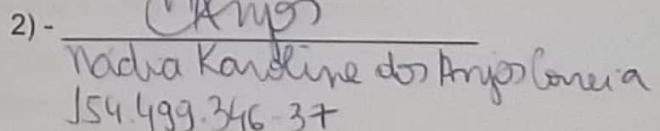 2) - Anjos
Nadia Karoline dos Anjos Correia
154.499.346-37